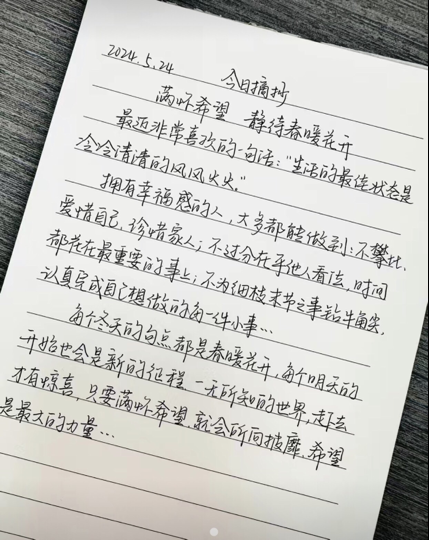 2024.5.24
今日摘抄
满怀希望 静待春暖花开
最近非常喜欢的一句话:“生活的最佳状态是
冷冷清清的风风火火。”
拥有幸福感的人,大多都能做到:不攀比,
爱惜自己,珍惜家人;不过分在乎他人看法,时间
都花在最重要的事上;不为细枝末节之事钻牛角尖,
认真完成自己想做的每一件小事…
每个冬天的句点都是春暖花开,每个明天的
开始也会是新的征程.一无所知的世界,走下去
才有惊喜.只要满怀希望,就会所向披靡.希望
是最大的力量…